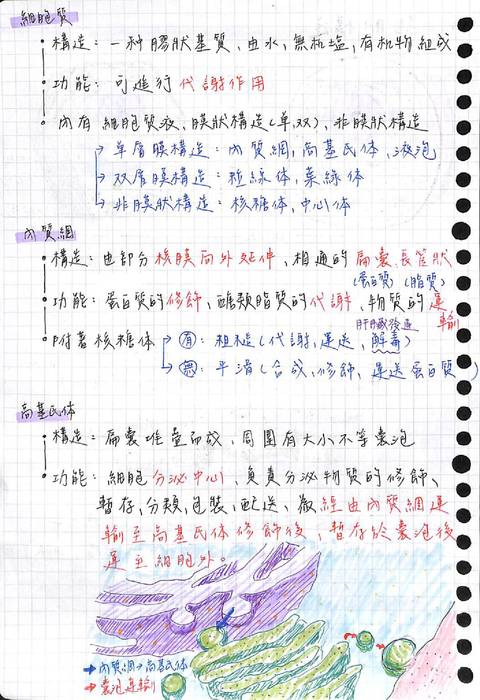 細胞質
• 構造：一种膠狀基質、由水,無机塩,有机物組成
• 功能：可進行代謝作用
• 內有 細胞質液、膜狀構造(单、双)、非膜狀構造
→ 单層膜構造：內質網,高基氏体,液泡
→ 双層膜構造：粒線体,葉綠体
→ 非膜狀構造：核糖体,中心体
內質網
• 構造：由部分核膜向外延伸、相通的扁囊、長管狀
(蛋白質) (脂質)
• 功能：蛋白質的修飾、醣類脂質的代謝、物質的運輸
肝臟後造
• 附著核糖体 → 有：粗糙(代謝,運送、解毒)
→ 無：平滑(合成,修飾、運送蛋白質)
高基氏体
• 構造：扁囊堆疊而成、周圍有大小不等囊泡
• 功能：細胞分泌中心、負責分泌物質的修飾、
暫存,分類,包裝,配送、微經由內質網運
輸至高基氏体修飾後,暫存於囊泡後
運至細胞外。
→ 內質網→高基氏体
→ 囊泡運輸